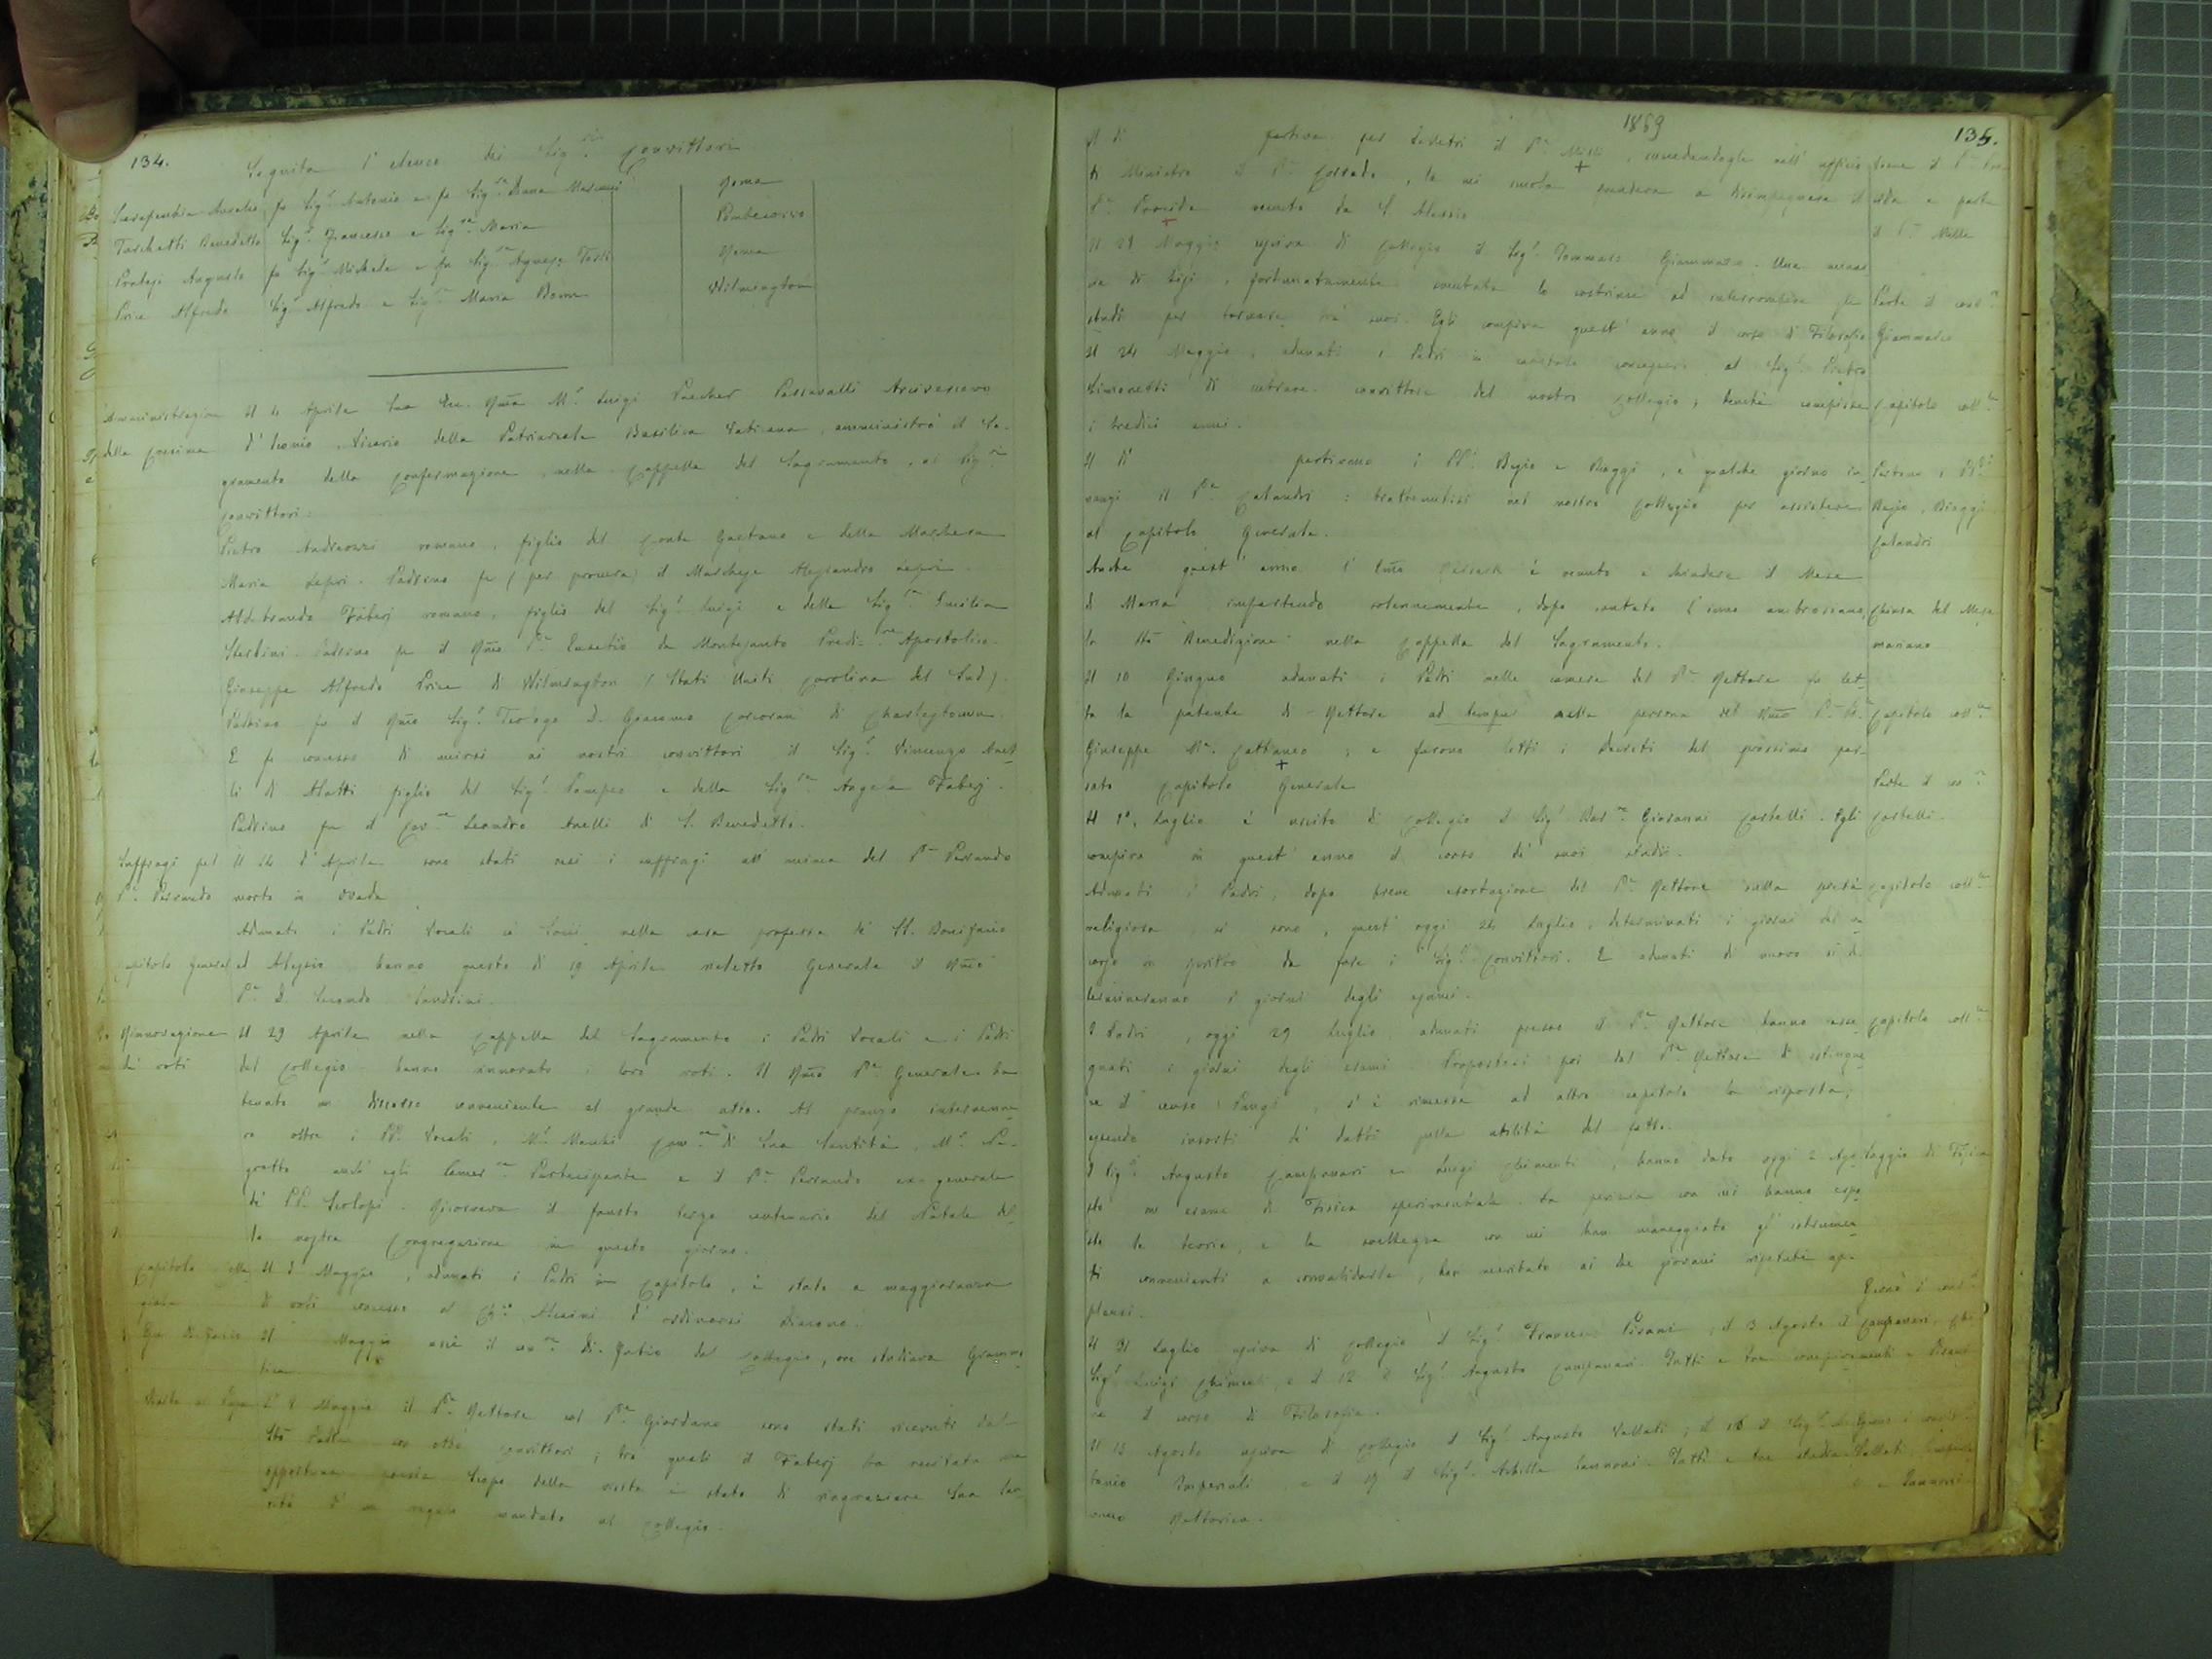 134.
Seguita l' elenco dei Sig.ri Convittori
Serafino Aurelio fu Sig.r Antonio e fu Sig.ra Roma
Benedetto Sig.r Francesco e Sig.ra Maria Pontecorvo
Augusto fu Sig.r Michele e fu Sig.ra Agnese Roma
Price Alfredo Sig.r Alfredo e Sig.ra Maria Wilmington
Amministrazione Il 4 Aprile Sua Ecc. Rma M.r Luigi Puecher Passavalli Arcivescovo
della Cresima d' Iconio, Vicario della Patriarcale Basilica Vaticana, amministrò il Sa-
gramento della Confermazione, nella Cappella del Sagramento, ai Sig.ri
Convittori:
Pietro romano, figlio del Conte Gaetano e della Marchesa
Maria Lepri. Padrino fu (per procura) il Marchese Alessandro Lepri.
Aldebrando Faberj romano, figlio del Sig.r Luigi e della Sig.ra Emilia
Sterbini. Padrino fu il Rmo P. Eusebio da Montesanto Predi=re Apostolico.
Giuseppe Alfredo Price di Wilmington (Stati Uniti Carolina del Sud).
Padrino fu il Rmo Sig.r Teologo D. Giacomo Corcoran di Charlestown.
E fu concesso di unirsi ai nostri convittori il Sig.r Vincenzo Anel-
li di Alatri figlio del Sig.r Pompeo e della Sig.ra Angela Faberj.
Padrino fu il Cav.re Leandro Anelli di S. Benedetto.
Suffragi pel Il 14 d' Aprile sono stati resi i suffragi all' anima del P. Perrando
P. Perrando morto in Ovada
Adunati i Padri Vocali ai Comizi nella casa professa de' SS. Bonifazio
Capitolo General ed Alessio hanno questo dì 19 Aprile rieletto Generale il Rmo
P. D. Secondo Sandrini.
Rinnovazione Il 29 Aprile nella Cappella del Sagramento i Padri Vocali e i Padri
de' voti del Collegio hanno innovato i loro voti. Il Rmo P. Generale ha
tenuto un discorso conveniente al grande atto. Al pranzo intervenne-
ro oltre i PP. Vocali, M.r di Sua Santità, M.r Ne-
grotto anch' egli Camer.re Partecipante e il P. Perrando ex-generale
de' PP. Scolopi. Ricorreva il fausto terzo centenario del Natale del-
la nostra Congregazione in questo giorno.
Capitolo Il Maggio, adunati i Padri in Capitolo, è stato a maggioranza
di voti concesso al Ch.co Alcaini d' ordinarsi Diacono.
Il Maggio uscì il con.re Di-Fazio dal Collegio, ove studiava Gramma-
tica.
Visita al Papa L' 8 Maggio il P. Rettore col P. Giordano sono stati ricevuti dal
Sto Padre con otto convittori; tra quali il Faberj ha recitata una
opportuna poesia. Scopo della visita è stato di ringraziare Sua San-
tità d' un regalo mandato al Collegio.
1869
135.
Il dì partiva per Velletri il P. Mille, succedendogli nell' officio viene il P. Pro-
di Ministro il P. Corrado, la cui scuola prendeva a disimpegnare il cida e parte
P. Procida venuto da S. Alessio. il P. Mille
Il 21 Maggio usciva di Collegio il Sig.r Tommaso Giammaria. Una minac-
cia di tisi, fortunatamente lo costrinse ad interrompere gli Parte il conv.re
studi per tornare tra' suoi. Egli compiva quest' anno il corso di Filosofia. Giammaria
Il 24 Maggio, adunati i Padri in capitolo concessero al Sig.r Pietro
Simonetti di entrare convittore del nostro Collegio, benché compisse Capitolo coll.le
i tredici anni.
Il dì partivano i PP. e Biaggi, e qualche giorno in- Partono i PP.
nanzi il P. Calandri: trattenutisi nel nostro Collegio per assistere Biaggi
al Capitolo Generale. Calandri
Anche quest' anno l' Emo è venuto a chiudere il Mese
di Maria impartendo solennemente, dopo cantato l' inno ambrosiano, Chiusa del Mese
la Sta Benedizione nella Cappella del Sagramento. mariano
Il 10 Giugno adunati i Padri nelle camere del P. Rettore fu let-
ta la patente di Rettore ad tempus nella persona del Rmo P. D. Capitolo coll.le
Giuseppe M. Cattaneo; e furono letti i Decreti del prossimo pas-
sato Capitolo Generale Parte il co.re
Il 1°. Luglio è uscito di Collegio il Sig.r Bar.ne Giovanni Castelli. Egli Castelli.
compiva in quest' anno il corso de' suoi studii.
Adunati i Padri, dopo breve esortazione del P. Rettore sulla pietà Capitolo coll.le
religiosa, si sono, quest' oggi 24 Luglio, determinati i giorni del con-
corso in iscritto da fare i Sig.ri Convittori. E adunati di nuovo si de-
termineranno i giorni degli esami.
I Padri, oggi 29 Luglio, adunati presso il P. Rettore hanno asse- Capitolo coll.le
gnati i giorni degli esami. Propostosi poi dal P. Rettore di estingue-
re il censo, s' è rimessa ad altro capitolo la risposta;
essendo insorti de' dubbi sulla utilità del fatto.
I Sig.ri Augusto Campanari e Luigi Chimenti, hanno dato oggi 2 Ago- Saggio di Fisica
sto un esame di Fisica sperimentale. La perizia con cui hanno espo-
ste le teorie, e la sveltezza con cui han maneggiato gl' istrumen-
ti convenienti a convalidarle, han meritato ai due giovani ripetuti ap-
plausi.
Il 31 Luglio usciva di Collegio il Sig.r Francesco Pisani; il 3 Agosto il Campanari, Chi-
Sig.r Luigi Chimenti, e il 12 il Sig.r Augusto Campanari. Tutti e tre compiva- menti e Pisani
no il corso di Filosofia.
Il 15 Agosto usciva di Collegio il Sig.r Augusto Vallati; il 16 il Sig.r
tonio Imperiali, e il 19 il Sig.r Achille Iannoni. Tutti e tre studia- Vallati, Imperiali
vano Rettorica. e Iannoni